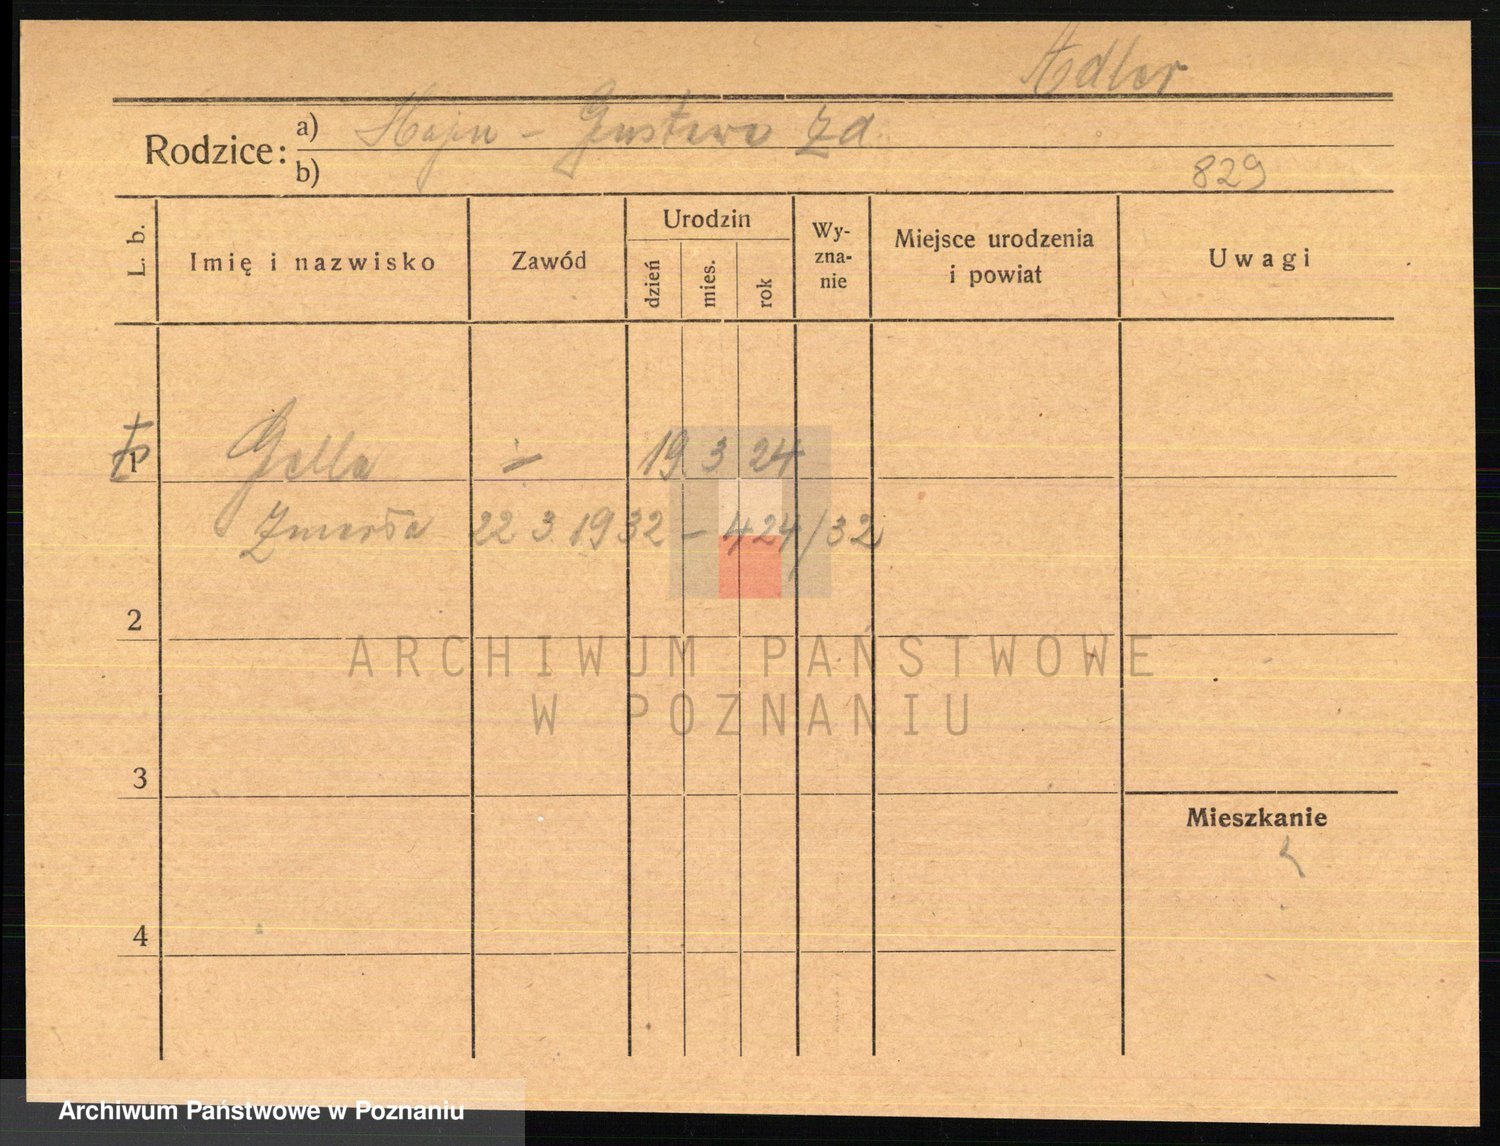 Adler
Rodzice: a) Hajn - Gustawa Zd.
b)
829
L. b.
Imię i nazwisko
Zawód
Urodzin
dzień
mies.
rok
Wy-
zna-
nie
Miejsce urodzenia
i powiat
Uwagi
1 Gella 19 3 24
Zmarła 22 3 1932 - 424/32
2
3
4
Mieszkanie
ARCHIWUM PAŃSTWOWE
W POZNANIU
Archiwum Państwowe w Poznaniu